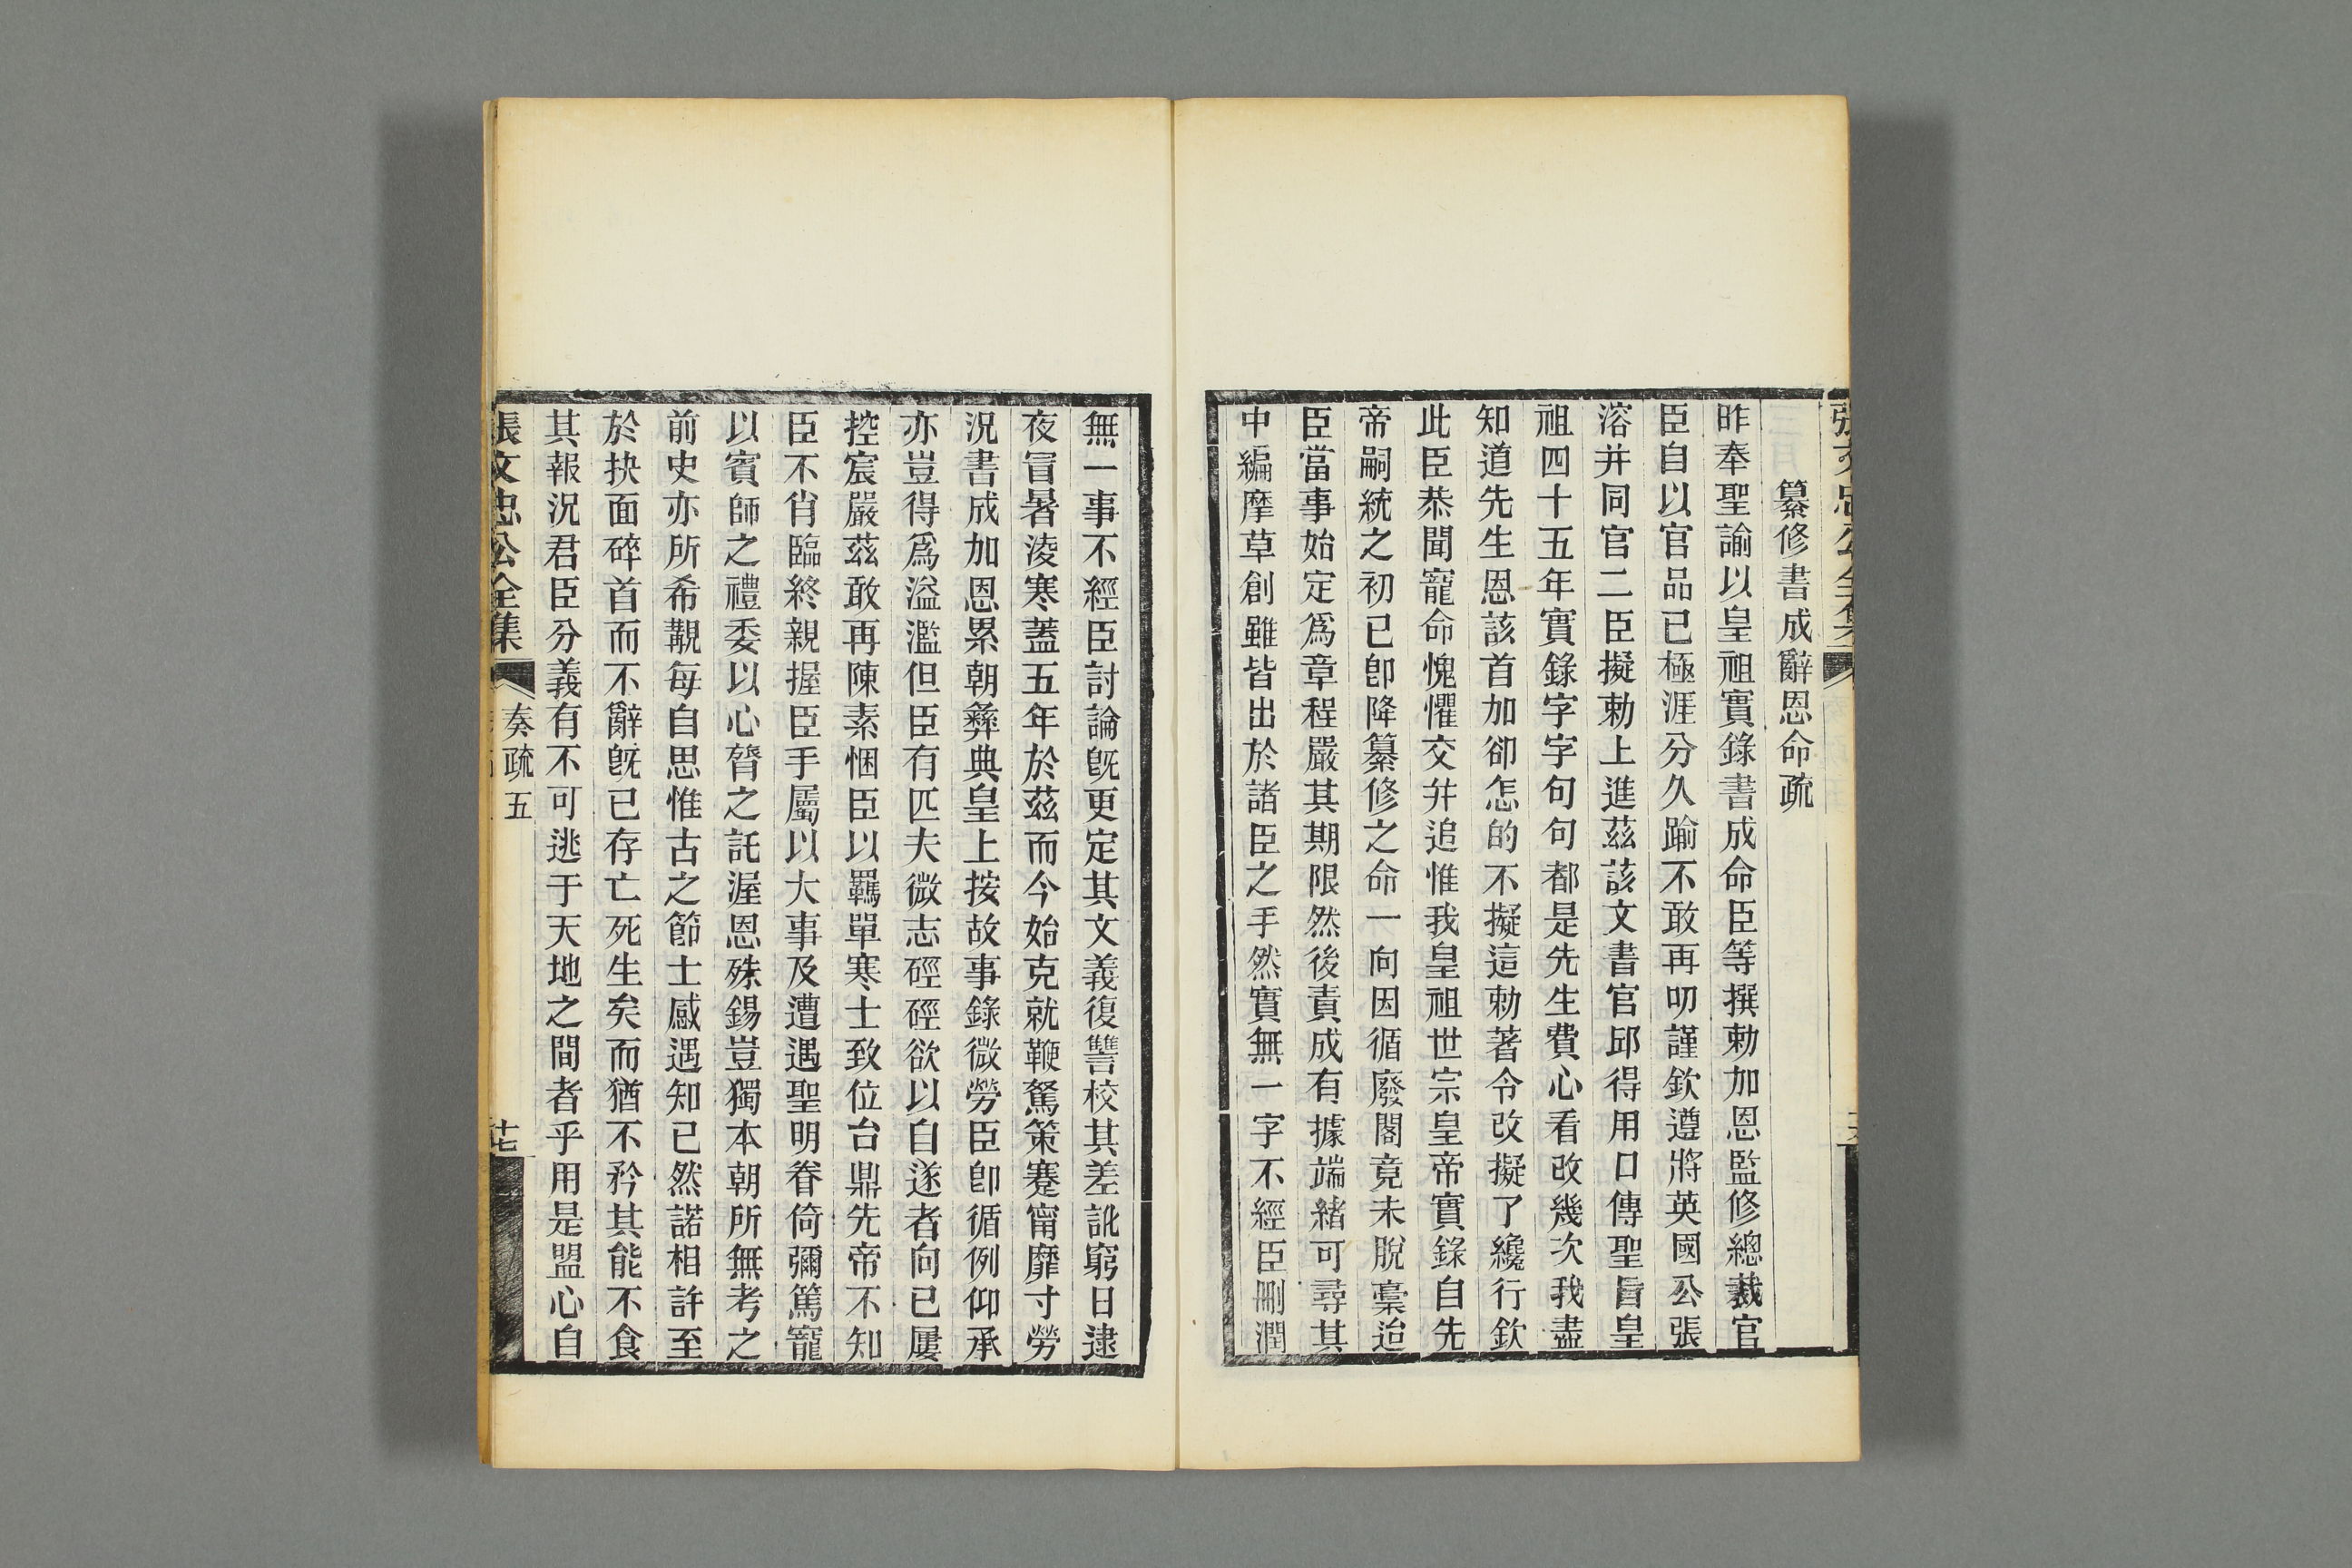 張文忠公全集
纂修書成辭恩命疏
昨奉聖諭以皇祖實錄書成命臣等撰勅加恩監修總裁官
臣自以官品已極涯分久踰不敢再叨謹欽遵將英國公張
溶并同官二臣擬勅上進茲該文書官邱得用口傳聖旨皇
祖四十五年實錄字字句句都是先生費心看改幾次我盡
知道先生恩該首加卻怎的不擬這勅著令改擬了纔行欽
此臣恭聞寵命愧懼交并追惟我皇祖世宗皇帝實錄自先
帝嗣統之初已卽降纂修之命一向因循廢閣竟未脫稾迨
臣當事始定爲章程嚴其期限然後責成有據端緒可尋其
中編摩草創雖皆出於諸臣之手然實無一字不經臣刪潤
無一事不經臣討論旣更定其文義復讐校其差訛窮日逮
夜冒暑淩寒蓋五年於茲而今始克就鞭駑策蹇甯靡寸勞
況書成加恩累朝彝典皇上按故事錄微勞臣卽循例仰承
亦豈得爲溢濫但臣有匹夫微志硜硜欲以自遂者向已屢
控宸嚴茲敢再陳素悃臣以羈單寒士致位台鼎先帝不知
臣不肖臨終親握臣手屬以大事及遭遇聖明眷倚彌篤寵
以賓師之禮委以心膂之託渥恩殊錫豈獨本朝所無考之
前史亦所希覯每自思惟古之節士感遇知已然諾相許至
於抉面碎首而不辭旣已存亡死生矣而猶不矜其能不食
其報況君臣分義有不可逃于天地之間者乎用是盟心自
張文忠公全集
奏疏五
十七